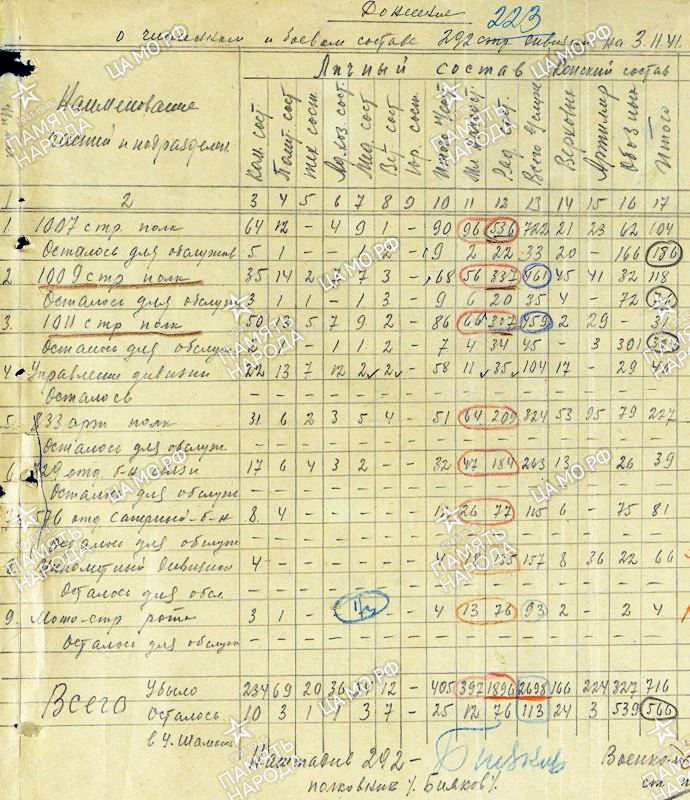 Донесение
223
о численном и боевом составе 292 стр. дивизии на 3.11.41.
Личный состав Конский состав
Наименование частей и подразделен. Ком. сост. Полит. сост тех сост. Мл. ком. сост. Мед. сост Вет. сост Юр. сост. Итого Мл. Ряд. сост. Всего Верховые Артиллер Обозные Итого
1 2 3 4 5 6 7 8 9 10 11 12 13 14 15 16 17
1. 1007 стр. полк 64 12 - 4 9 1 - 90 96 536 722 21 23 62 104
Осталось для обслужив 5 1 - - 1 2 - 9 2 22 33 20 - 166 186
2 1009 стр. полк 35 14 2 7 3 - 68 56 337 461 45 41 32 118
Осталось для обслуж 3 1 1 - 1 3 - 9 6 20 35 4 - 72 76
3. 1011 стр полк 50 13 5 7 9 2 - 86 66 307 459 2 29 - 31
Осталось для обслуж - - 1 1 2 - 7 4 34 45 - 3 301
4 Управление дивизии 22 13 7 12 2 2 - 58 11 35 104 17 - 29 46
Осталось
5. 833 арт полк 31 6 2 3 5 4 - 51 64 209 324 53 95 79 227
Осталось для обслуж. - - - - - - - - - - - - - - -
6 отд. б-н связи 17 6 4 3 2 - - 32 47 184 263 13 - 26 39
Осталось для обслуж - - - - - - - - - - - - - - -
отд саперный б-н 8 4 - - - - - 26 77 115 6 - 75 81
Осталось для обслуж - - - - - - - - - - - - - - -
дивизион 4 - - - - - - 4 157 8 36 22 66
Осталось для обсл. - - - - - - - - - - - - - - -
9. Мото-стр рота 3 1 - - - - 4 13 76 93 2 - 2 4
Осталось для обслуж - - - - - - - - - - - - - - -
Всего Убыло 234 69 20 36 12 - 405 397 1896 2698 166 224 327 716
Осталось 10 3 1 1 3 7 - 25 12 76 113 24 3 539 566
в Ч.
Наштадив 292 - Военком
полковник /. Бияков/. ст.
ПАМЯТЬ НАРОДА
ЦАМО.РФ